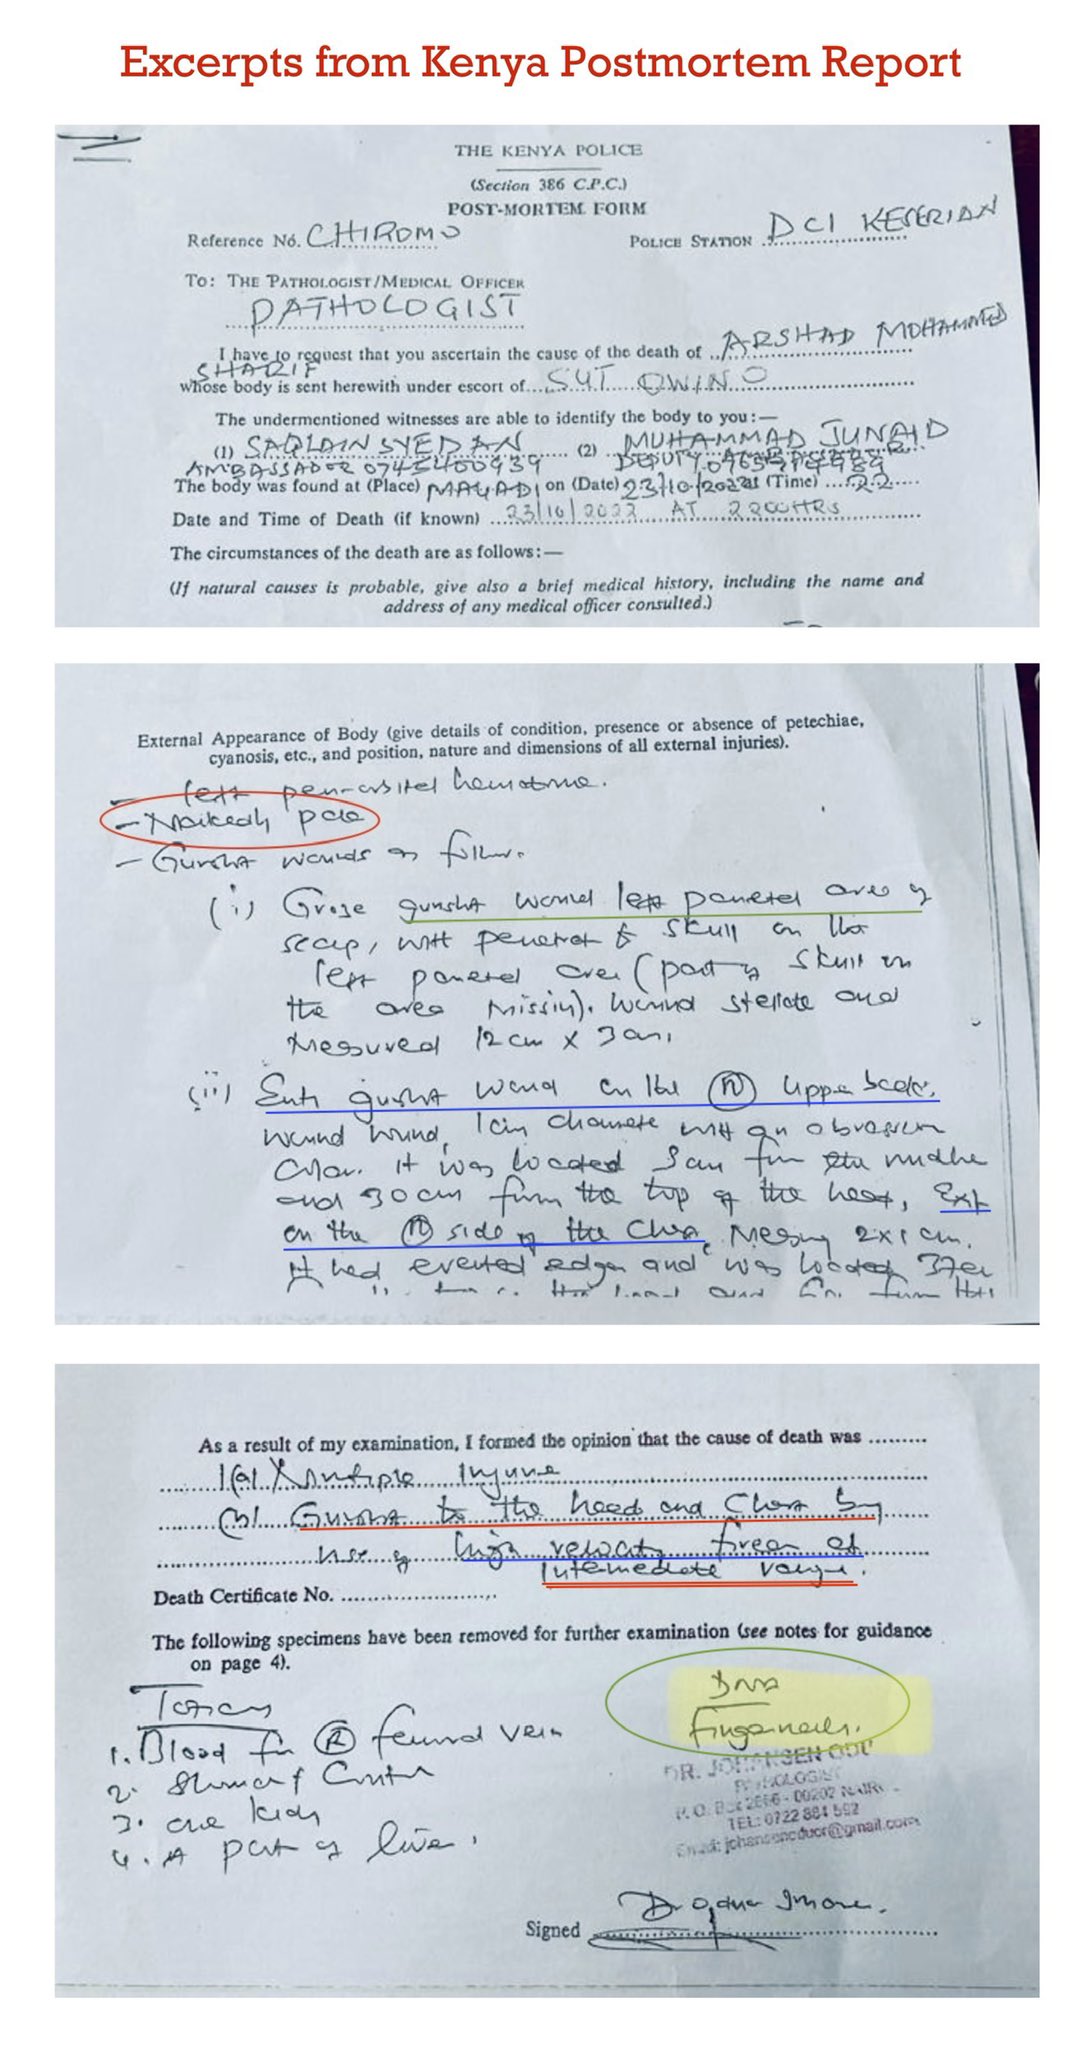 Excerpts from Kenya Postmortem Report
THE KENYA POLICE
(Section 386 C.P.C.)
POST-MORTEM FORM
Reference No. CHIROMO
POLICE STATION DCI KESERIAN
To: THE PATHOLOGIST/MEDICAL OFFICER
PATHOLOGIST
I have to request that you ascertain the cause of the death of ARSHAD MOHAMMED
SHARIF
whose body is sent herewith under escort of SGT OWINO
The undermentioned witnesses are able to identify the body to you:—
(1) SAQLAIN SYEDAN (2) MUHAMMAD JUNAID
AMBASSADOR DEPUTY
The body was found at (Place) MAGADI on (Date) 23/10/2022 at (Time) 22
Date and Time of Death (if known) 23/10/2022 AT 2200HRS
The circumstances of the death are as follows:—
(If natural causes is probable, give also a brief medical history, including the name and
address of any medical officer consulted.)
External Appearance of Body (give details of condition, presence or absence of petechiae,
cyanosis, etc., and position, nature and dimensions of all external injuries).
- left peri-orbital hematoma.
- Markedly pale
- Gunshot wounds as follow.
(i) gunshot wound left parietal area of
scalp, with penetrat to skull on the
left parietal area (part of skull in
the area missing). Wound stellate and
Measured 12 cm x 3 cm.
(ii) Entry gunshot wound on the (R) upper back.
wound, 1cm with an abrasion
collar. It was located from the midline
and 30 cm from the top of the head, Exit
on the (R) side of the chest, 2x1 cm.
It had everted edges and was located 37cm
As a result of my examination, I formed the opinion that the cause of death was
1(a) Multiple Injuries
(b) Gunshot to the head and Chest by
use of high velocity firearm at
Intermediate range.
Death Certificate No.
The following specimens have been removed for further examination (see notes for guidance
on page 4).
DNA
Fingernails.
1. Blood from (R) femoral vein
2. Stomach Content
3. one kidney
4. A part of liver.
DR. JOHANSEN ODU
PATHOLOGIST
P.O. Box 2666 - 00202
TEL: 0722 884 592
Email: johansenoduor@gmail.com
Signed